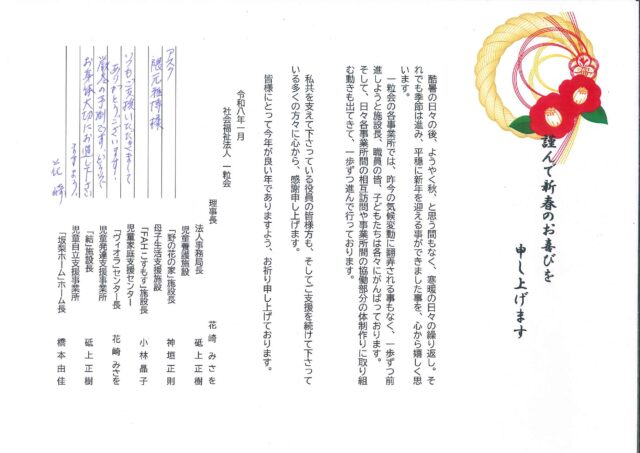 謹んで新春のお喜びを
申し上げます
酷暑の日々の後、ようやく秋、と思う間もなく、寒暖の日々の繰り返し。そ
れでも季節は進み、平穏に新年を迎える事ができました事を、心から嬉しく思
います。
一粒会の各事業所では、昨今の気候変動に翻弄される事もなく、一歩ずつ前
進しようと施設長、職員の皆、子どもたちは各々にがんばっております。
そして、日々各事業所間の相互訪問や事業所間の協働部分の体制作りに取り組
む動きも出てきて、一歩ずつ進んで行っております。
私共を支えて下さっている役員の皆様方も、そしてご支援を続けて下さって
いる多くの方々に心から、感謝申し上げます。
皆様にとって今年が良い年でありますよう、お祈り申し上げております。
令和八年一月
社会福祉法人 一粒会
理事長 花崎 みさを
法人事務局長 砥上 正樹
児童養護施設
「野の花の家」施設長 神垣 正則
母子生活支援施設
「FAHこすもす」施設長 小林 晶子
児童家庭支援センター
「ヴィオラ」センター長 花崎 みさを
児童発達支援事業所
「結」施設長 砥上 正樹
児童自立支援事業所
「坂梨ホーム」ホーム長 橋本 由佳
アスク
隈元 雅博 様
いつもご支援いただきまして
ありがとうございます。
厳冬の予測です。どうぞ
お身体大切にお過し下さい
ますよう。
花崎